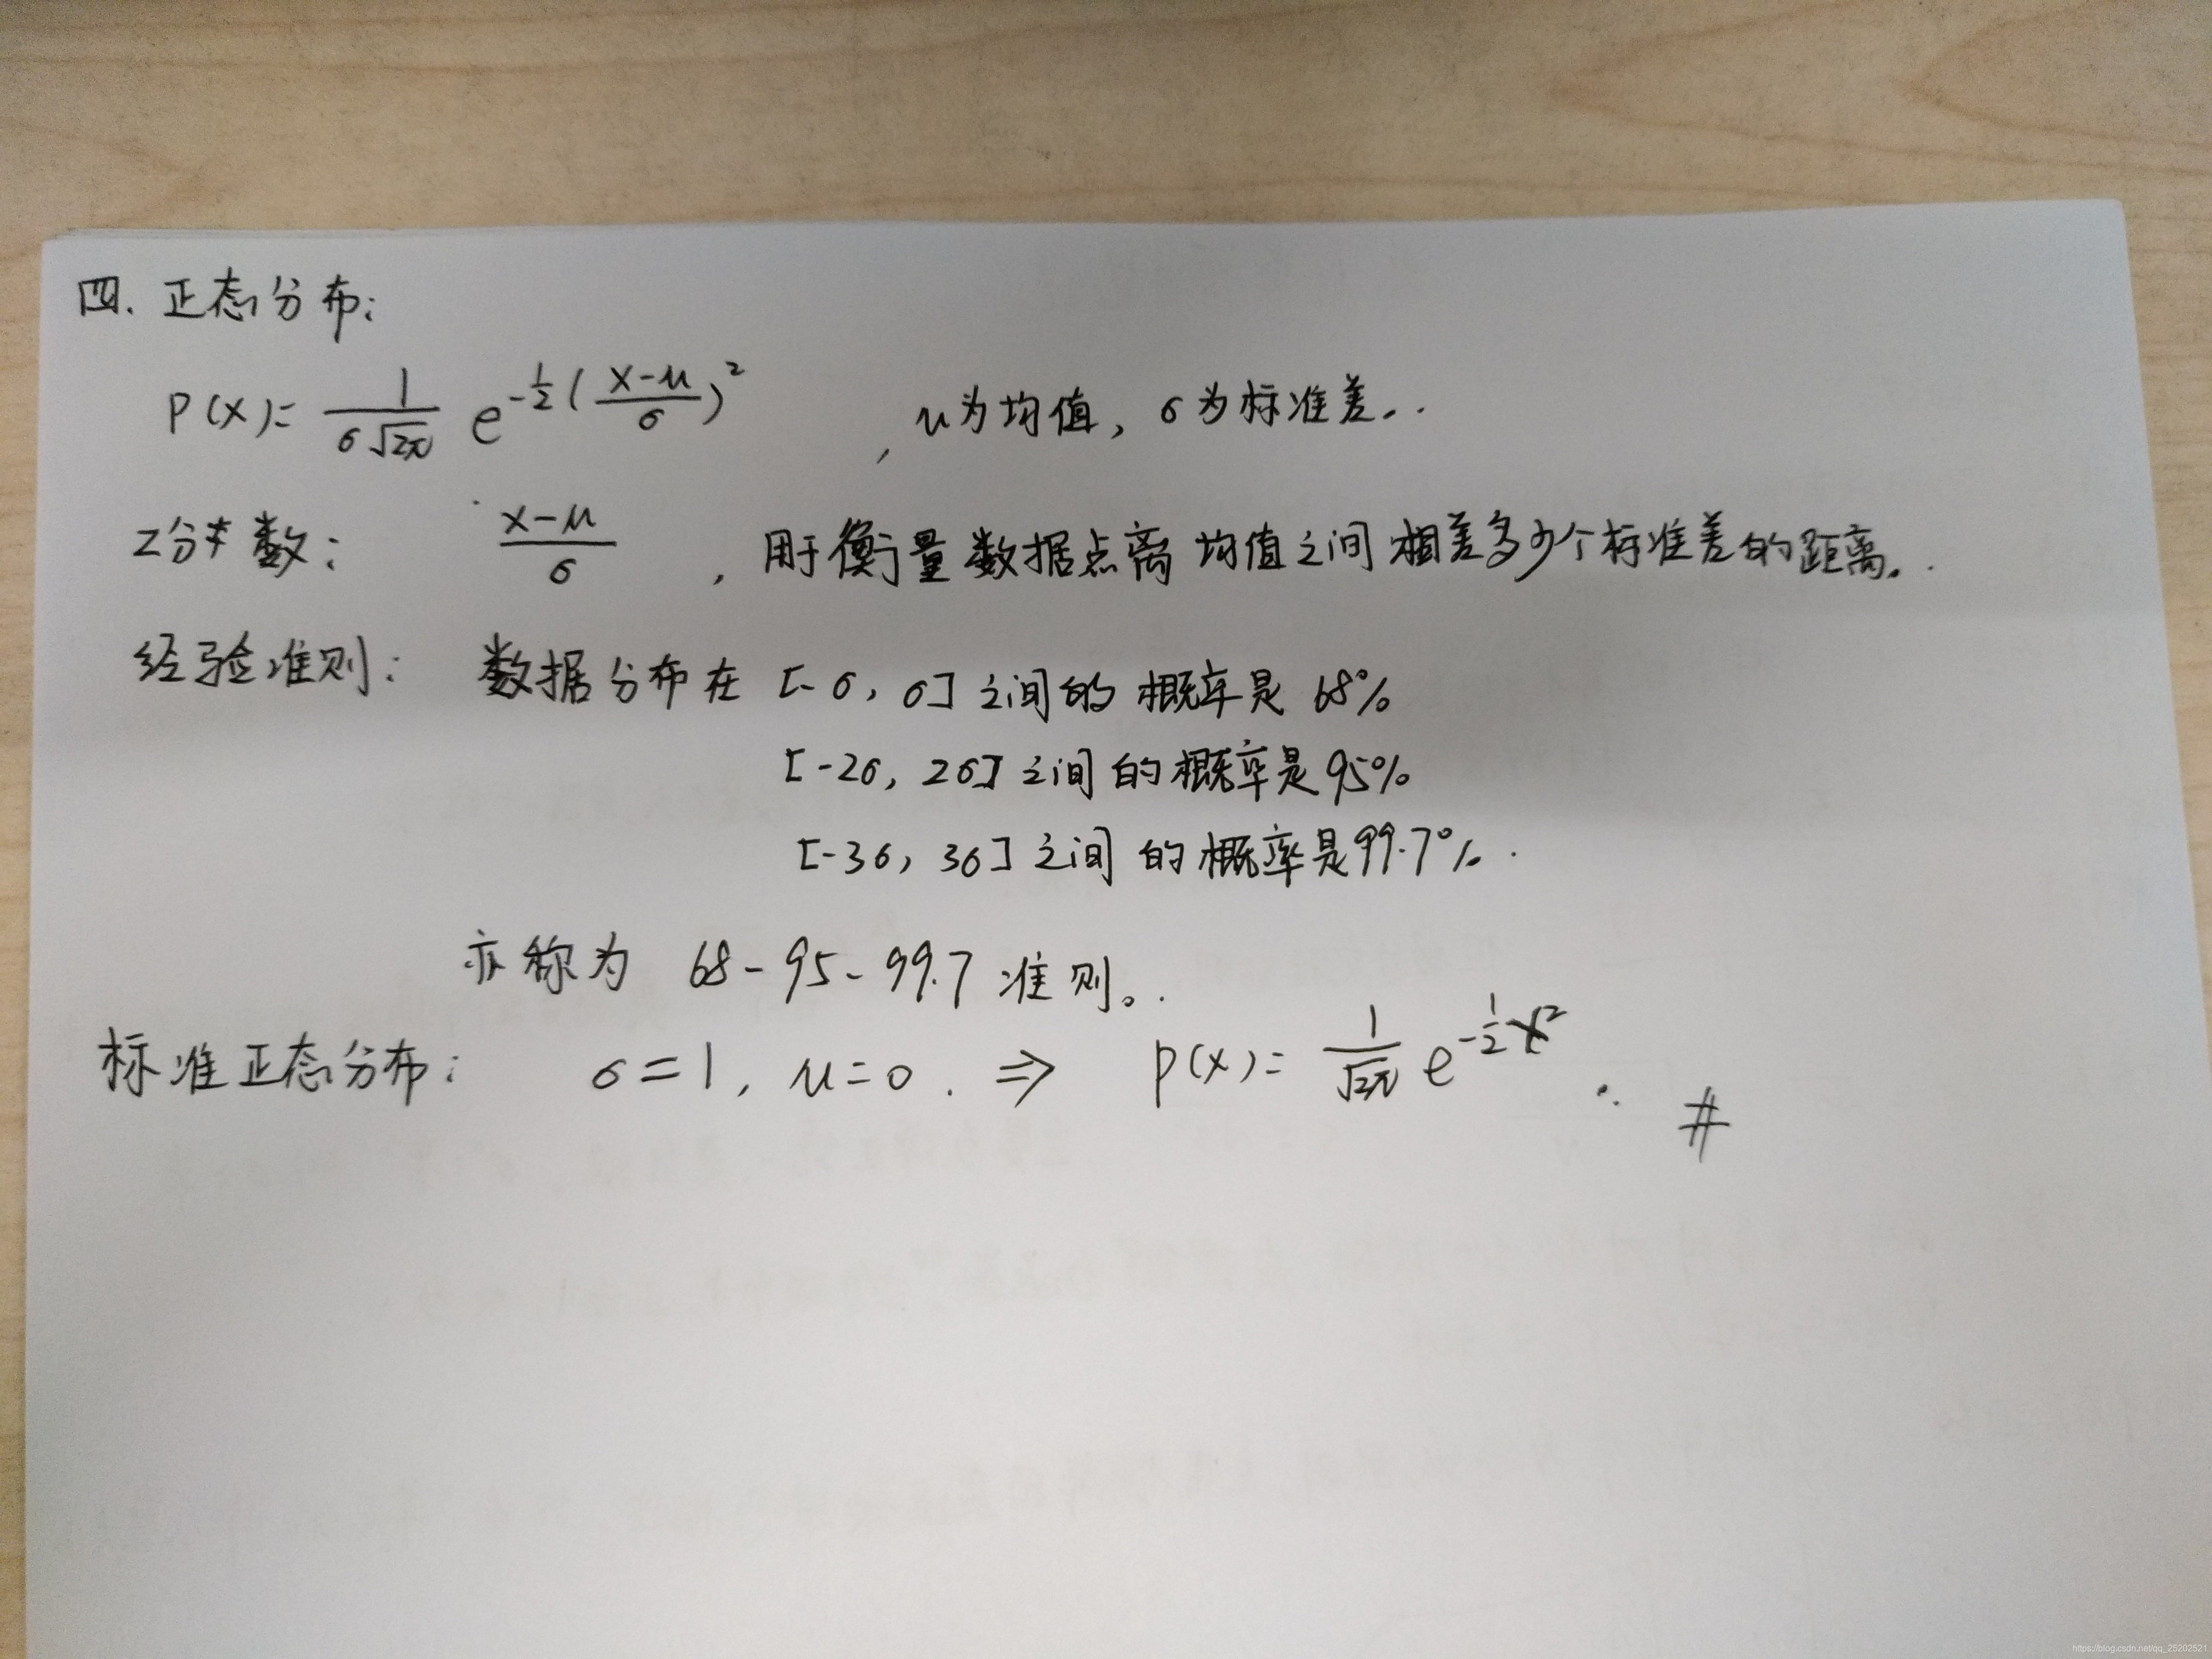 四. 正态分布:
P(x)= \frac{1}{σ\sqrt{2π}} e^{-\frac{1}{2}(\frac{x-μ}{σ})^2} , μ为均值, σ为标准差。.
z分数: \frac{x-μ}{σ} , 用于衡量数据点离均值之间相差多少个标准差的距离。.
经验准则: 数据分布在 [-σ, σ] 之间的概率是 68%
[-2σ, 2σ] 之间的概率是95%
[-3σ, 3σ] 之间的概率是99.7% .
亦称为 68-95-99.7 准则。.
标准正态分布: σ=1, μ=0 . ⇒ P(x)= \frac{1}{\sqrt{2π}} e^{-\frac{1}{2}x^2} . #
https://blog.csdn.net/qq_25202521